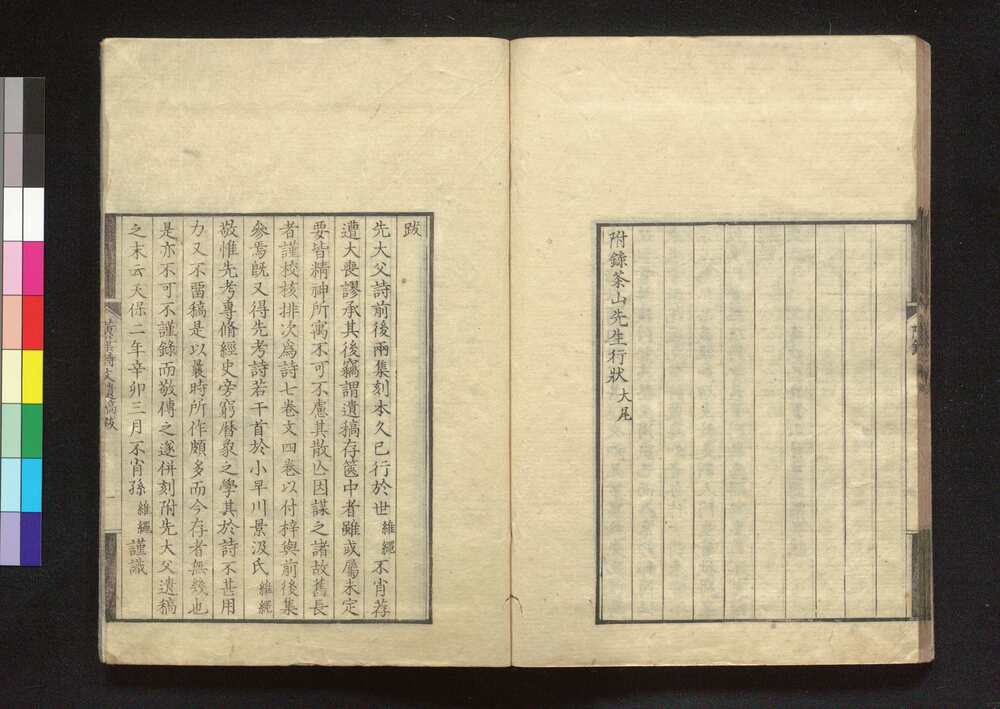 附錄茶山先生行狀 大尾
附錄
跋
先大父詩前後兩集刻本久已行於世維繩不肖荐
遭大喪謬承其後竊謂遺稿存篋中者雖或屬未定
要皆精神所寓不可不慮其散亾因謀之諸故舊長
者謹校核排次爲詩七卷文四卷以付梓與前後集
參焉既又得先考詩若干首於小早川景汲氏維繩
敬惟先考專脩經史旁窮曆象之學其於詩不甚用
力又不畱稿是以曩時所作頗多而今存者無幾也
是亦不可不謹錄而敬傳之遂併刻附先大父遺稿
之末云天保二年辛卯三月不肖孫維繩謹識
黃葉詩文遺稿跋 一